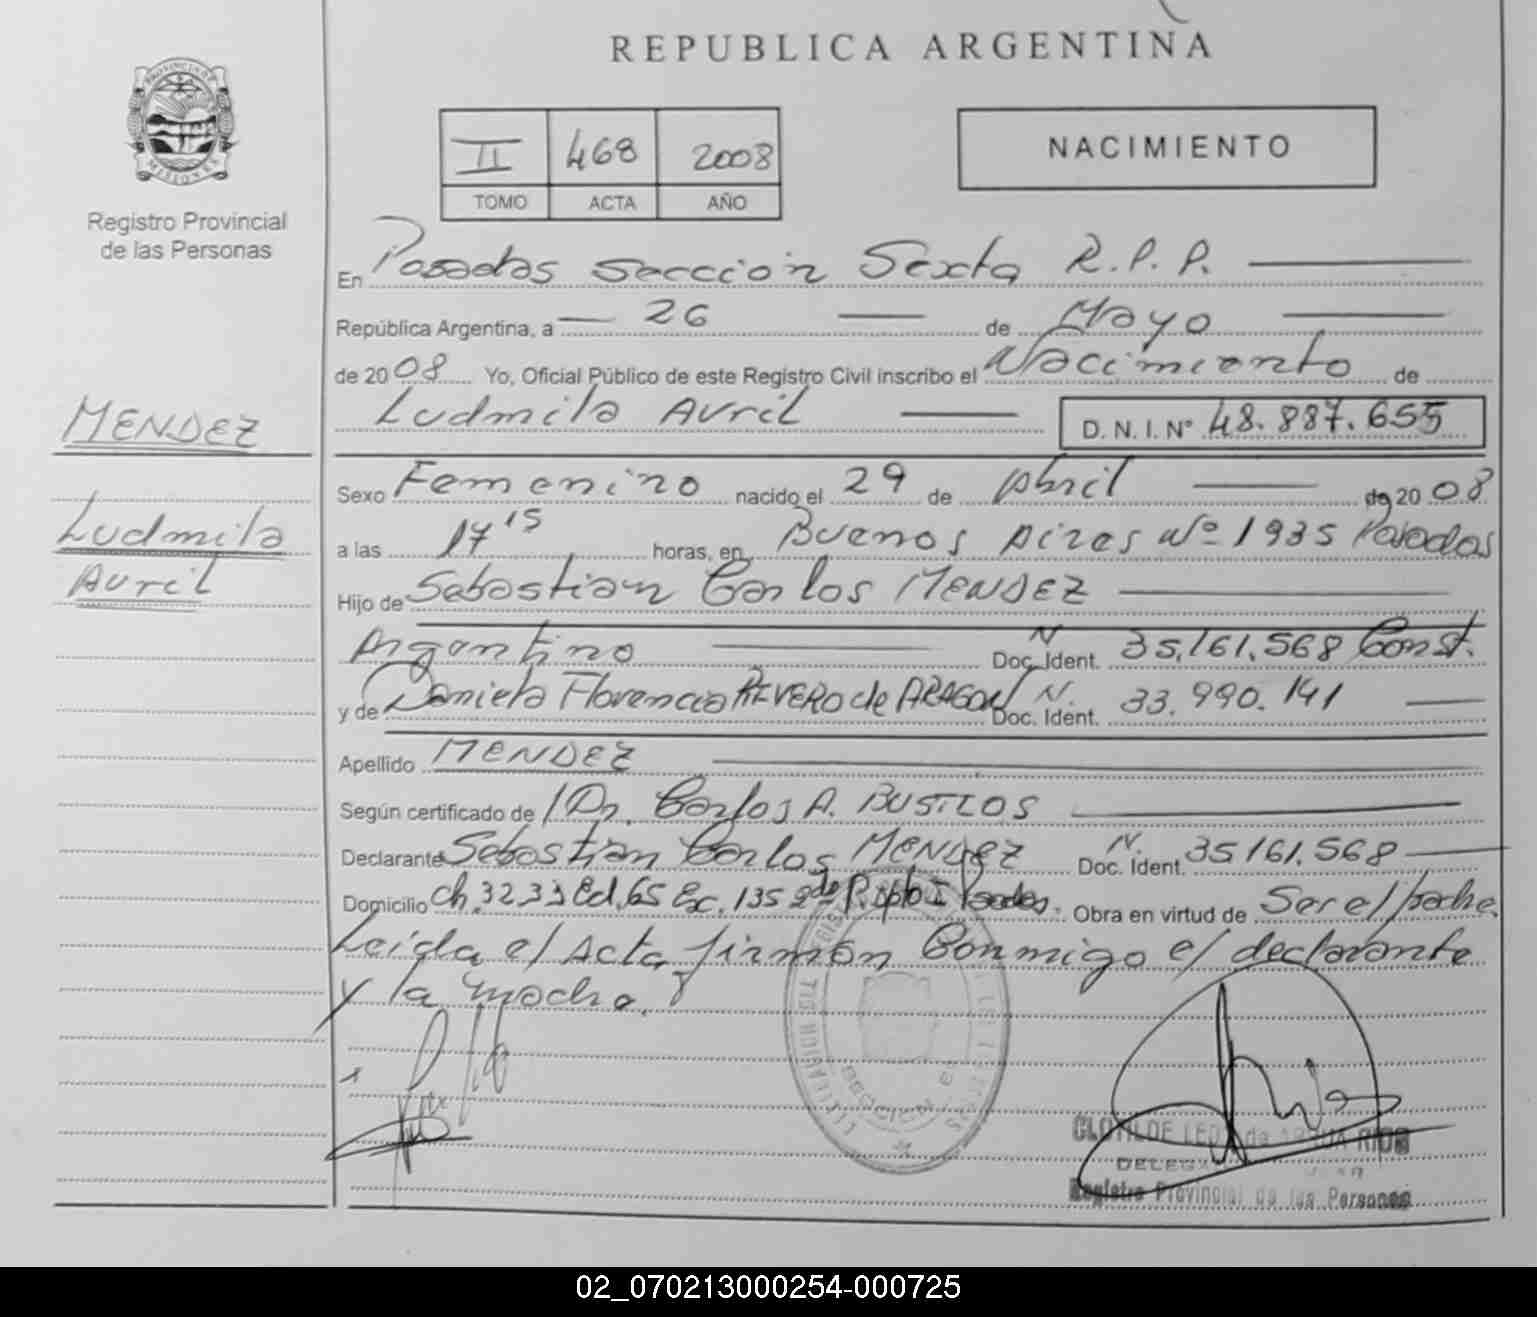 REPUBLICA ARGENTINA
PROVINCIA DE
MISIONES
Registro Provincial
de las Personas
II 468 2008
TOMO ACTA AÑO
NACIMIENTO
En Posadas Seccion Sexta R.P.P.
República Argentina, a 26 de Mayo
de 2008 Yo, Oficial Público de este Registro Civil inscribo el Nacimiento de
MENDEZ
Ludmila Avril
Ludmila Avril D.N.I. N° 48.887.655
Sexo Femenino nacido el 29 de Abril de 2008
a las 17 15 horas, en Buenos Aires Nº 1935 Posadas
Hijo de Sebastian Carlos MENDEZ
Argentino Doc. Ident. N 35.161.568 Const.
y de Daniela Florencia RIVERO de ARAGON Doc. Ident. N. 33.990.141
Apellido MENDEZ
Según certificado de Dr. Carlos A. BUSTLOS
Declarante Sebastian Carlos MENDEZ Doc. Ident. N. 35161.568
Domicilio Ch. 32.33 Ed. 65 Esc. 135 2do P. Dpto I Posadas. Obra en virtud de Ser el padre.
Leida el Acta firman Conmigo el declarante
y la madre.
SECCION
CLOTILDE
Registro Provincial de las Personas
02_070213000254-000725